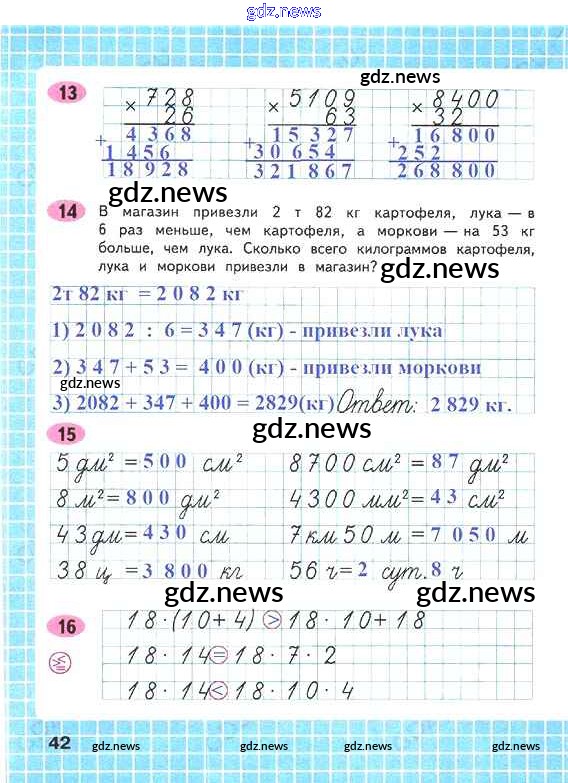 gdz.news
gdz.news
13
× 728 × 5109 × 8400
26 63 32
+ 4368 + 15327 + 16800
1456 30654 252
18928 321867 268800
gdz.news
14 В магазин привезли 2 т 82 кг картофеля, лука — в
6 раз меньше, чем картофеля, а моркови — на 53 кг
больше, чем лука. Сколько всего килограммов картофеля,
лука и моркови привезли в магазин?
gdz.news
2т 82 кг = 2 0 8 2 кг
1) 2 0 8 2 : 6 = 3 4 7 (кг) - привезли лука
2) 3 4 7 + 5 3 = 4 0 0 (кг) - привезли моркови
gdz.news
3) 2082 + 347 + 400 = 2829(кг) Ответ: 2 829 кг.
gdz.news
15
5 дм² = 500 см² 8700 см² = 87 дм²
8 м² = 800 дм² 4300 мм² = 43 см²
43 дм = 430 см 7 км 50 м = 7 050 м
38 ц = 3 800 кг 56 ч = 2 сут. 8 ч
gdz.news gdz.news
16 18 · (10 + 4) > 18 · 10 + 18
18 · 14 = 18 · 7 · 2
18 · 14 < 18 · 10 · 4
42
gdz.news gdz.news gdz.news gdz.news